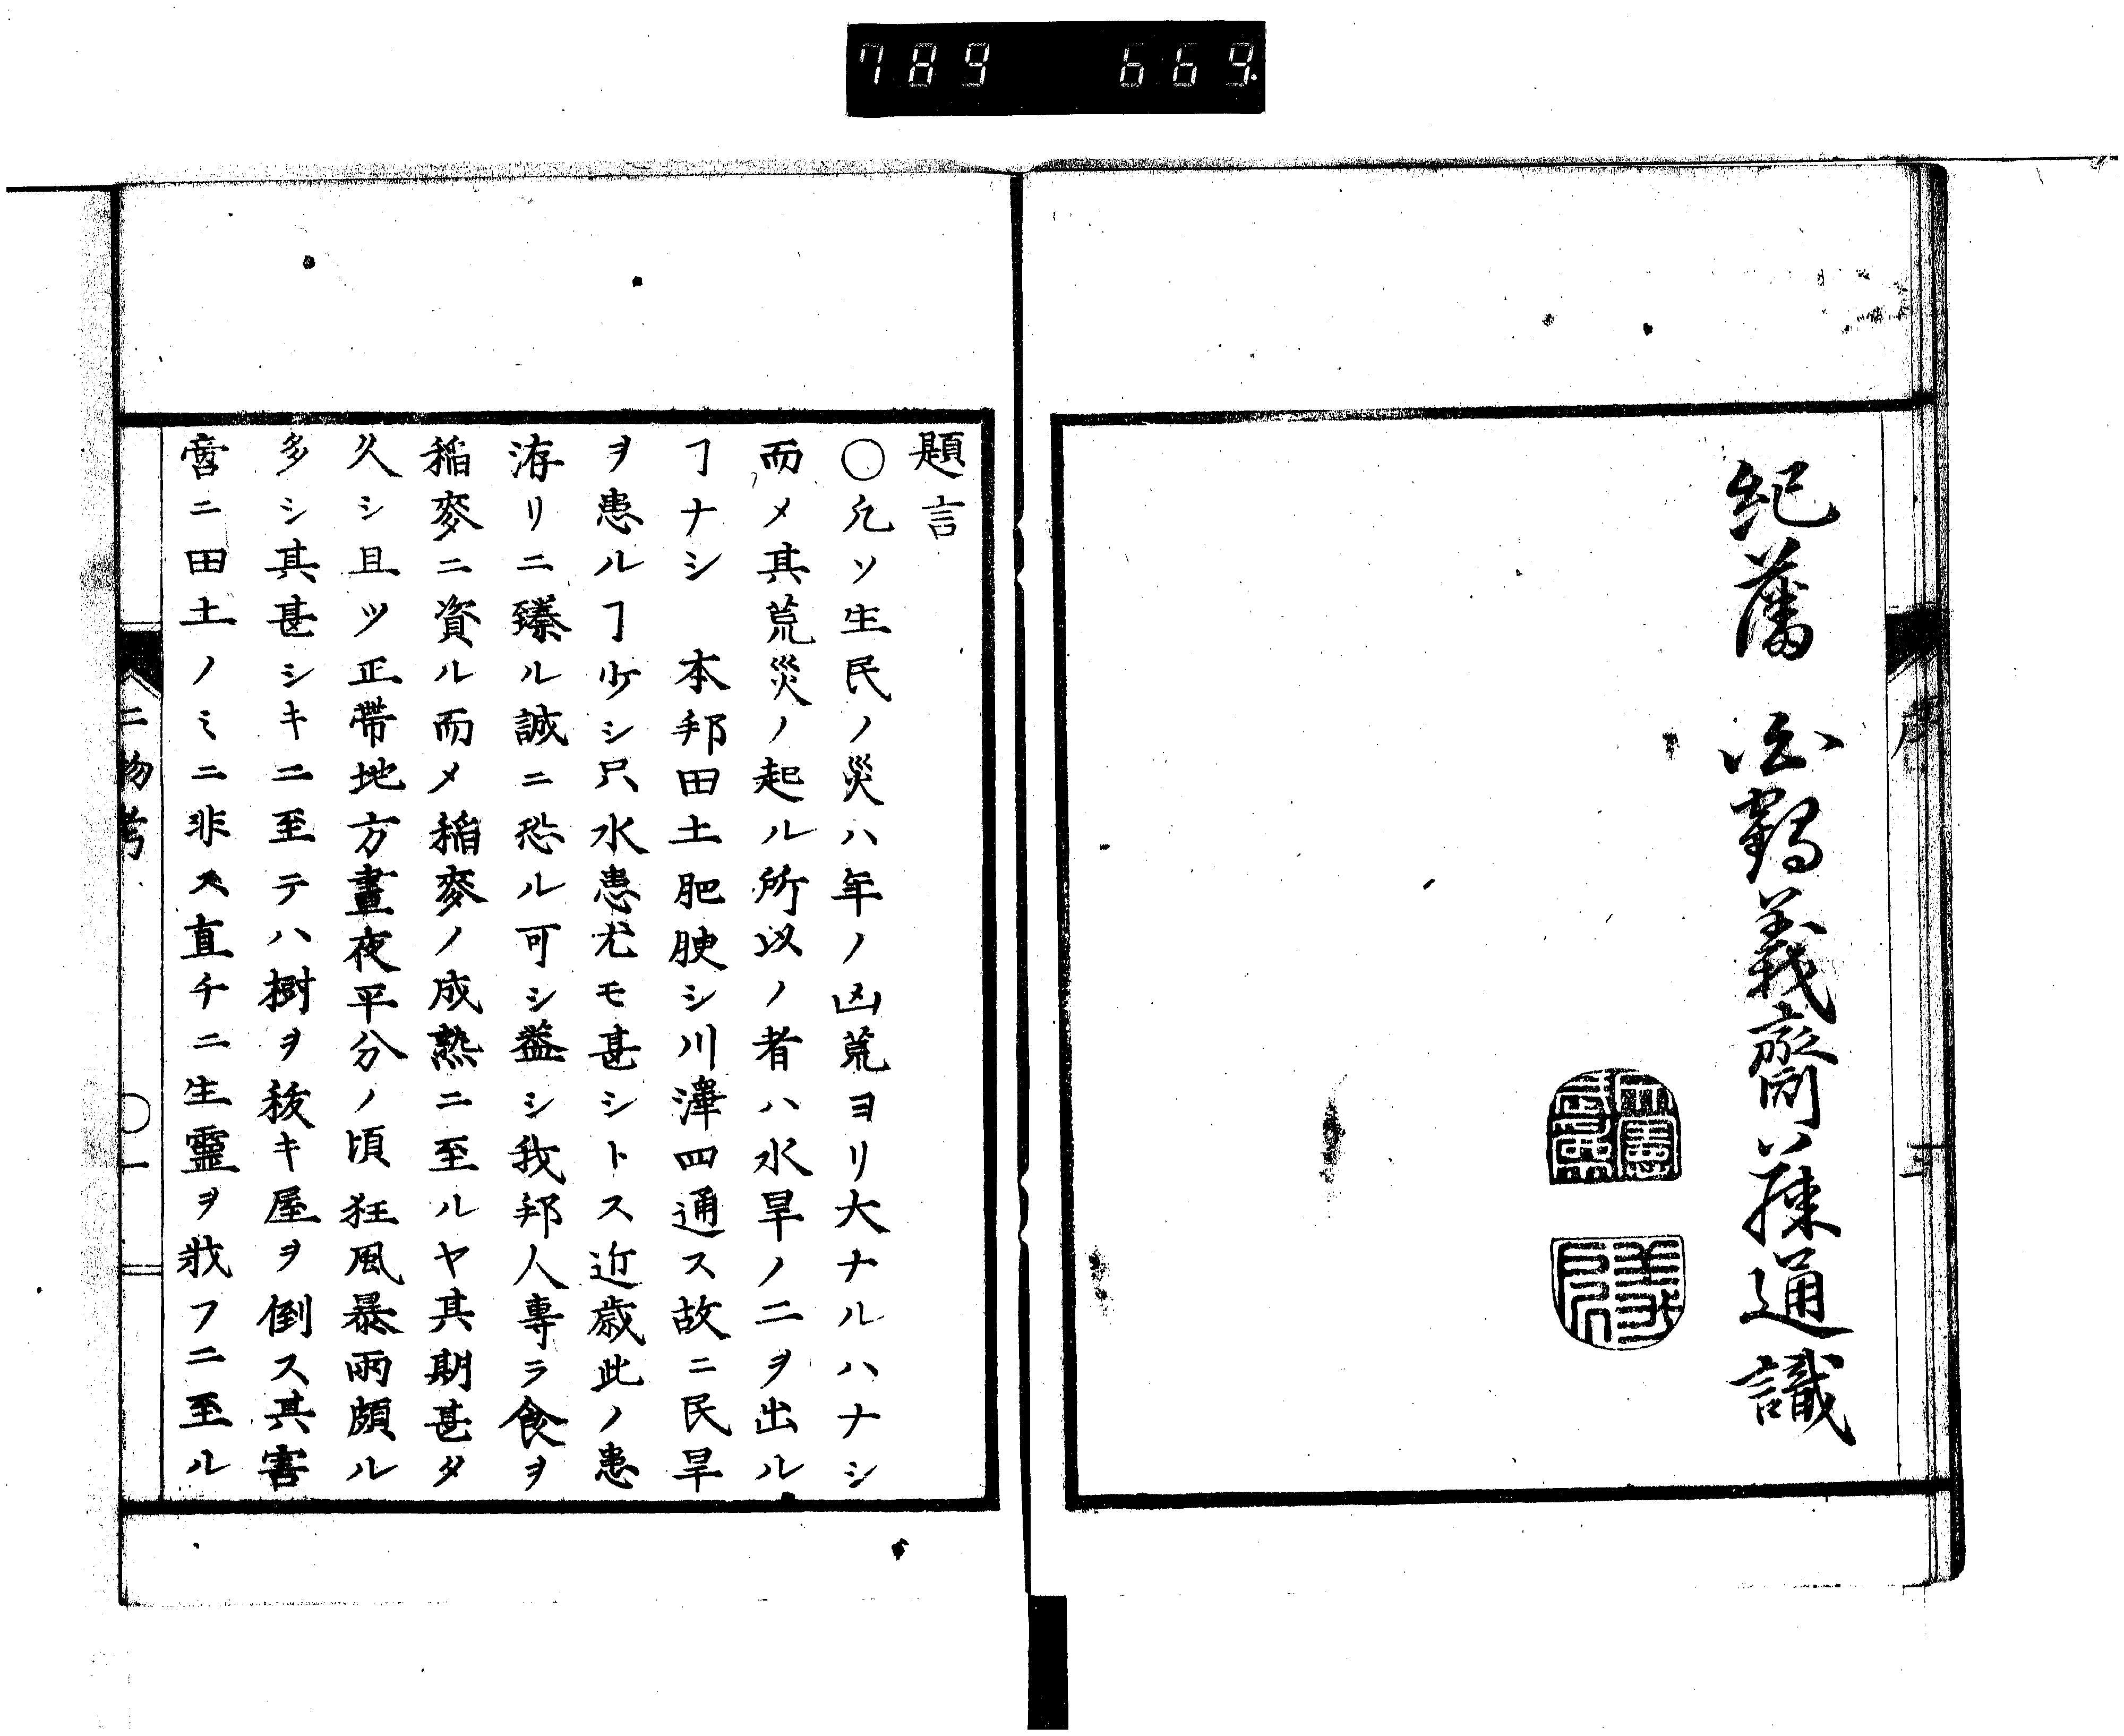 789 669
紀藩 遠藤義齋藤通識
序
三
題言
○凢ソ生民ノ災ハ年ノ凶荒ヨリ大ナルハナシ
而メ其荒災ノ起ル所以ノ者ハ水旱ノ二ヲ出ル
ヿナシ 本邦田土肥腴シ川澤四通ス故ニ民旱
ヲ患ルヿ少シ只水患尤モ甚シトス近歳此ノ患
洊リニ臻ル誠ニ恐ル可シ益シ我邦人專ラ食ヲ
稲麥ニ資ル而メ稲麥ノ成熟ニ至ルヤ其期甚タ
久シ且ツ正帶地方晝夜平分ノ頃狂風暴雨頗ル
多シ其甚シキニ至テハ樹ヲ拔キ屋ヲ倒ス其害
啻ニ田土ノミニ非ス直チニ生靈ヲ戕フニ至ル
二物考
○一